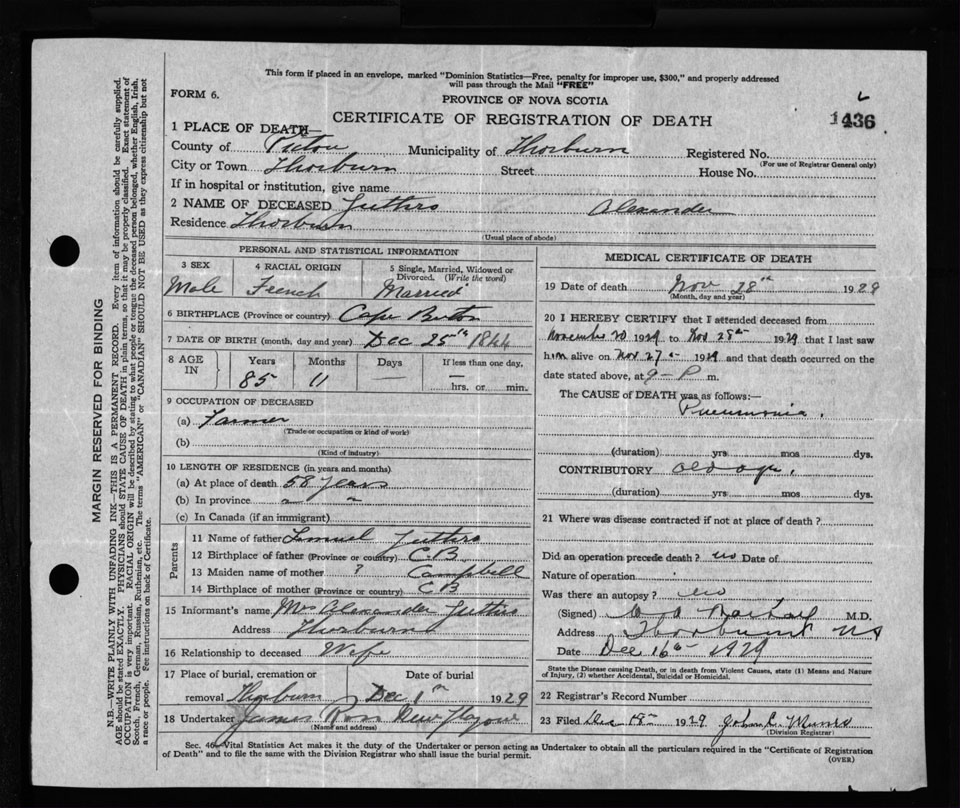 This form if placed in an envelope, marked "Dominion Statistics—Free, penalty for improper use, $300," and properly addressed
will pass through the Mail "FREE"
FORM 6.
PROVINCE OF NOVA SCOTIA
CERTIFICATE OF REGISTRATION OF DEATH
1436
1 PLACE OF DEATH—
County of Pictou Municipality of Thorburn Registered No.
(For use of Registrar General only)
City or Town Thorburn Street House No.
If in hospital or institution, give name
2 NAME OF DECEASED Jeithro Alexander
Residence Thorburn
(Usual place of abode)
PERSONAL AND STATISTICAL INFORMATION
3 SEX 4 RACIAL ORIGIN 5 Single, Married, Widowed or Divorced. (Write the word)
Male French Married
6 BIRTHPLACE (Province or country) Cape Breton
7 DATE OF BIRTH (month, day and year) Dec 25th 1844
8 AGE IN Years Months Days If less than one day,
85 11 — — hrs. or min.
9 OCCUPATION OF DECEASED
(a) Farmer
(Trade or occupation or kind of work)
(b)
(Kind of industry)
10 LENGTH OF RESIDENCE (in years and months)
(a) At place of death 58 years
(b) In province " "
(c) In Canada (if an immigrant)
Parents
11 Name of father
12 Birthplace of father (Province or country) C.B
13 Maiden name of mother ? Campbell
14 Birthplace of mother (Province or country) C B
15 Informant's name Mrs Alexander
Address Thorburn
16 Relationship to deceased Wife
17 Place of burial, cremation or Date of burial
removal Thorburn Dec 1st 1929
18 Undertaker James Ross New Glasgow
(Name and address)
MEDICAL CERTIFICATE OF DEATH
19 Date of death Nov 28th 1929
(Month, day and year)
20 I HEREBY CERTIFY that I attended deceased from
November 20 1929 to Nov 28th 1929 that I last saw
him alive on Nov 27th 1929 and that death occurred on the
date stated above, at 9-P m.
The CAUSE of DEATH was as follows:—
Pneumonia.
(duration) yrs mos dys.
CONTRIBUTORY old age.
(duration) yrs mos dys.
21 Where was disease contracted if not at place of death?
Did an operation precede death? no Date of
Nature of operation
Was there an autopsy? no
(Signed) M.D.
Address Thorburn NS
Date Dec 16th 1929
State the Disease causing Death, or in death from Violent Causes, state (1) Means and Nature
of Injury, (2) whether Accidental, Suicidal or Homicidal.
22 Registrar's Record Number
23 Filed Dec 18th 1929 John C. Munro
(Division Registrar)
Sec. 46—Vital Statistics Act makes it the duty of the Undertaker or person acting as Undertaker to obtain all the particulars required in the "Certificate of Registration
of Death" and to file the same with the Division Registrar who shall issue the burial permit.
(OVER)
MARGIN RESERVED FOR BINDING
N.B.—WRITE PLAINLY WITH UNFADING INK—THIS IS A PERMANENT RECORD. Every item of information should be carefully supplied.
AGE should be stated EXACTLY. PHYSICIANS should STATE CAUSE OF DEATH in plain terms, so that it may be properly classified. Exact statement of
OCCUPATION is very important. RACIAL ORIGIN will be described by stating to what people or tongue the deceased person belonged, whether English, Irish,
Scotch, French, German, Russian, Ruthenian, etc. The terms "AMERICAN" or "CANADIAN" SHOULD NOT BE USED as they express citizenship but not
a race or people. See instructions on back of Certificate.